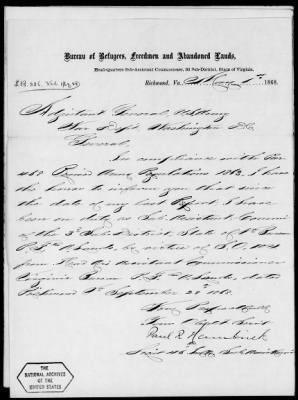 Bureau of Refugees, Freedmen and Abandoned Lands,
Head-Quarters Sub-Assistant Commissioner, 3d Sub-District, State of Virginia,
Richmond, Va., 1st 1868.
Adjutant General, U.S. Army
War Dept. Washington D.C.
General,
In compliance with Par
Revised Army Regulations 1863. I have
the honor to inform you that since
the date of my last Report, I have
been on duty as Sub Assistant Commr
of the 3d Sub District, State of Va Bureau
R.F. & A. Lands, by virtue of S.O.
from Assistant Commissioner
Virginia Bureau R.F. & A. Lands, dated
Richmond Va September 22d
Very Respectfully
Your Obdt Servt
Paul R. Hambrick
THE
NATIONAL ARCHIVES
OF THE
UNITED STATES